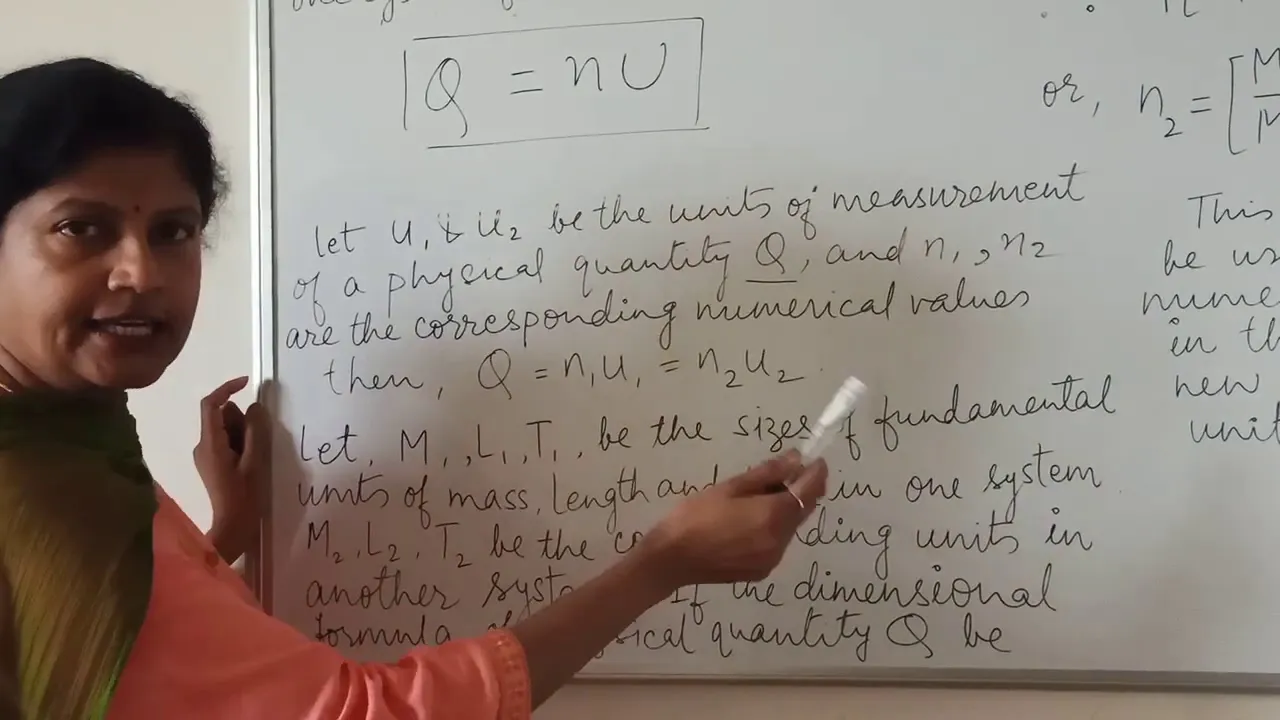 Q = nU
let u1 & u2 be the units of measurement
of a physical quantity Q, and n1, n2
are the corresponding numerical values
then, Q = n1u1 = n2u2.
Let, M1, L1, T1, be the sizes of fundamental
units of mass, length and in one system
M2, L2, T2 be the units in
another If the dimensional
formula quantity Q be
or, n2 = [M
This
be
in
new